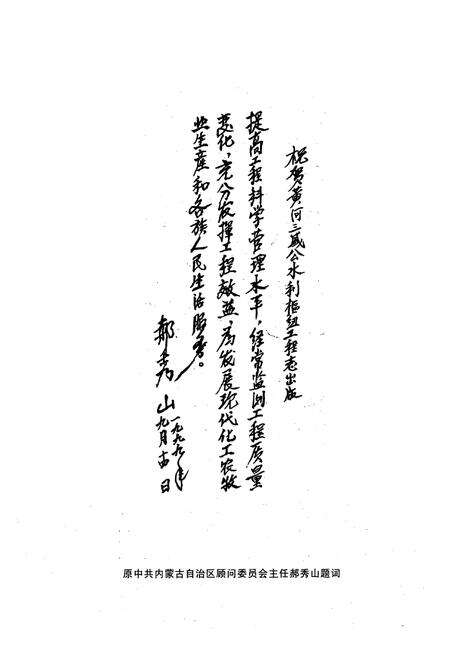 祝贺黄河三盛公水利枢纽工程志出版
提高工程科学管理水平，经常监测工程质量
变化，充分发挥工程效益，为发展现代化工农牧
业生産和各族人民生活服务。
郝秀山
一九九九年
九月十四日
原中共内蒙古自治区顾问委员会主任郝秀山题词